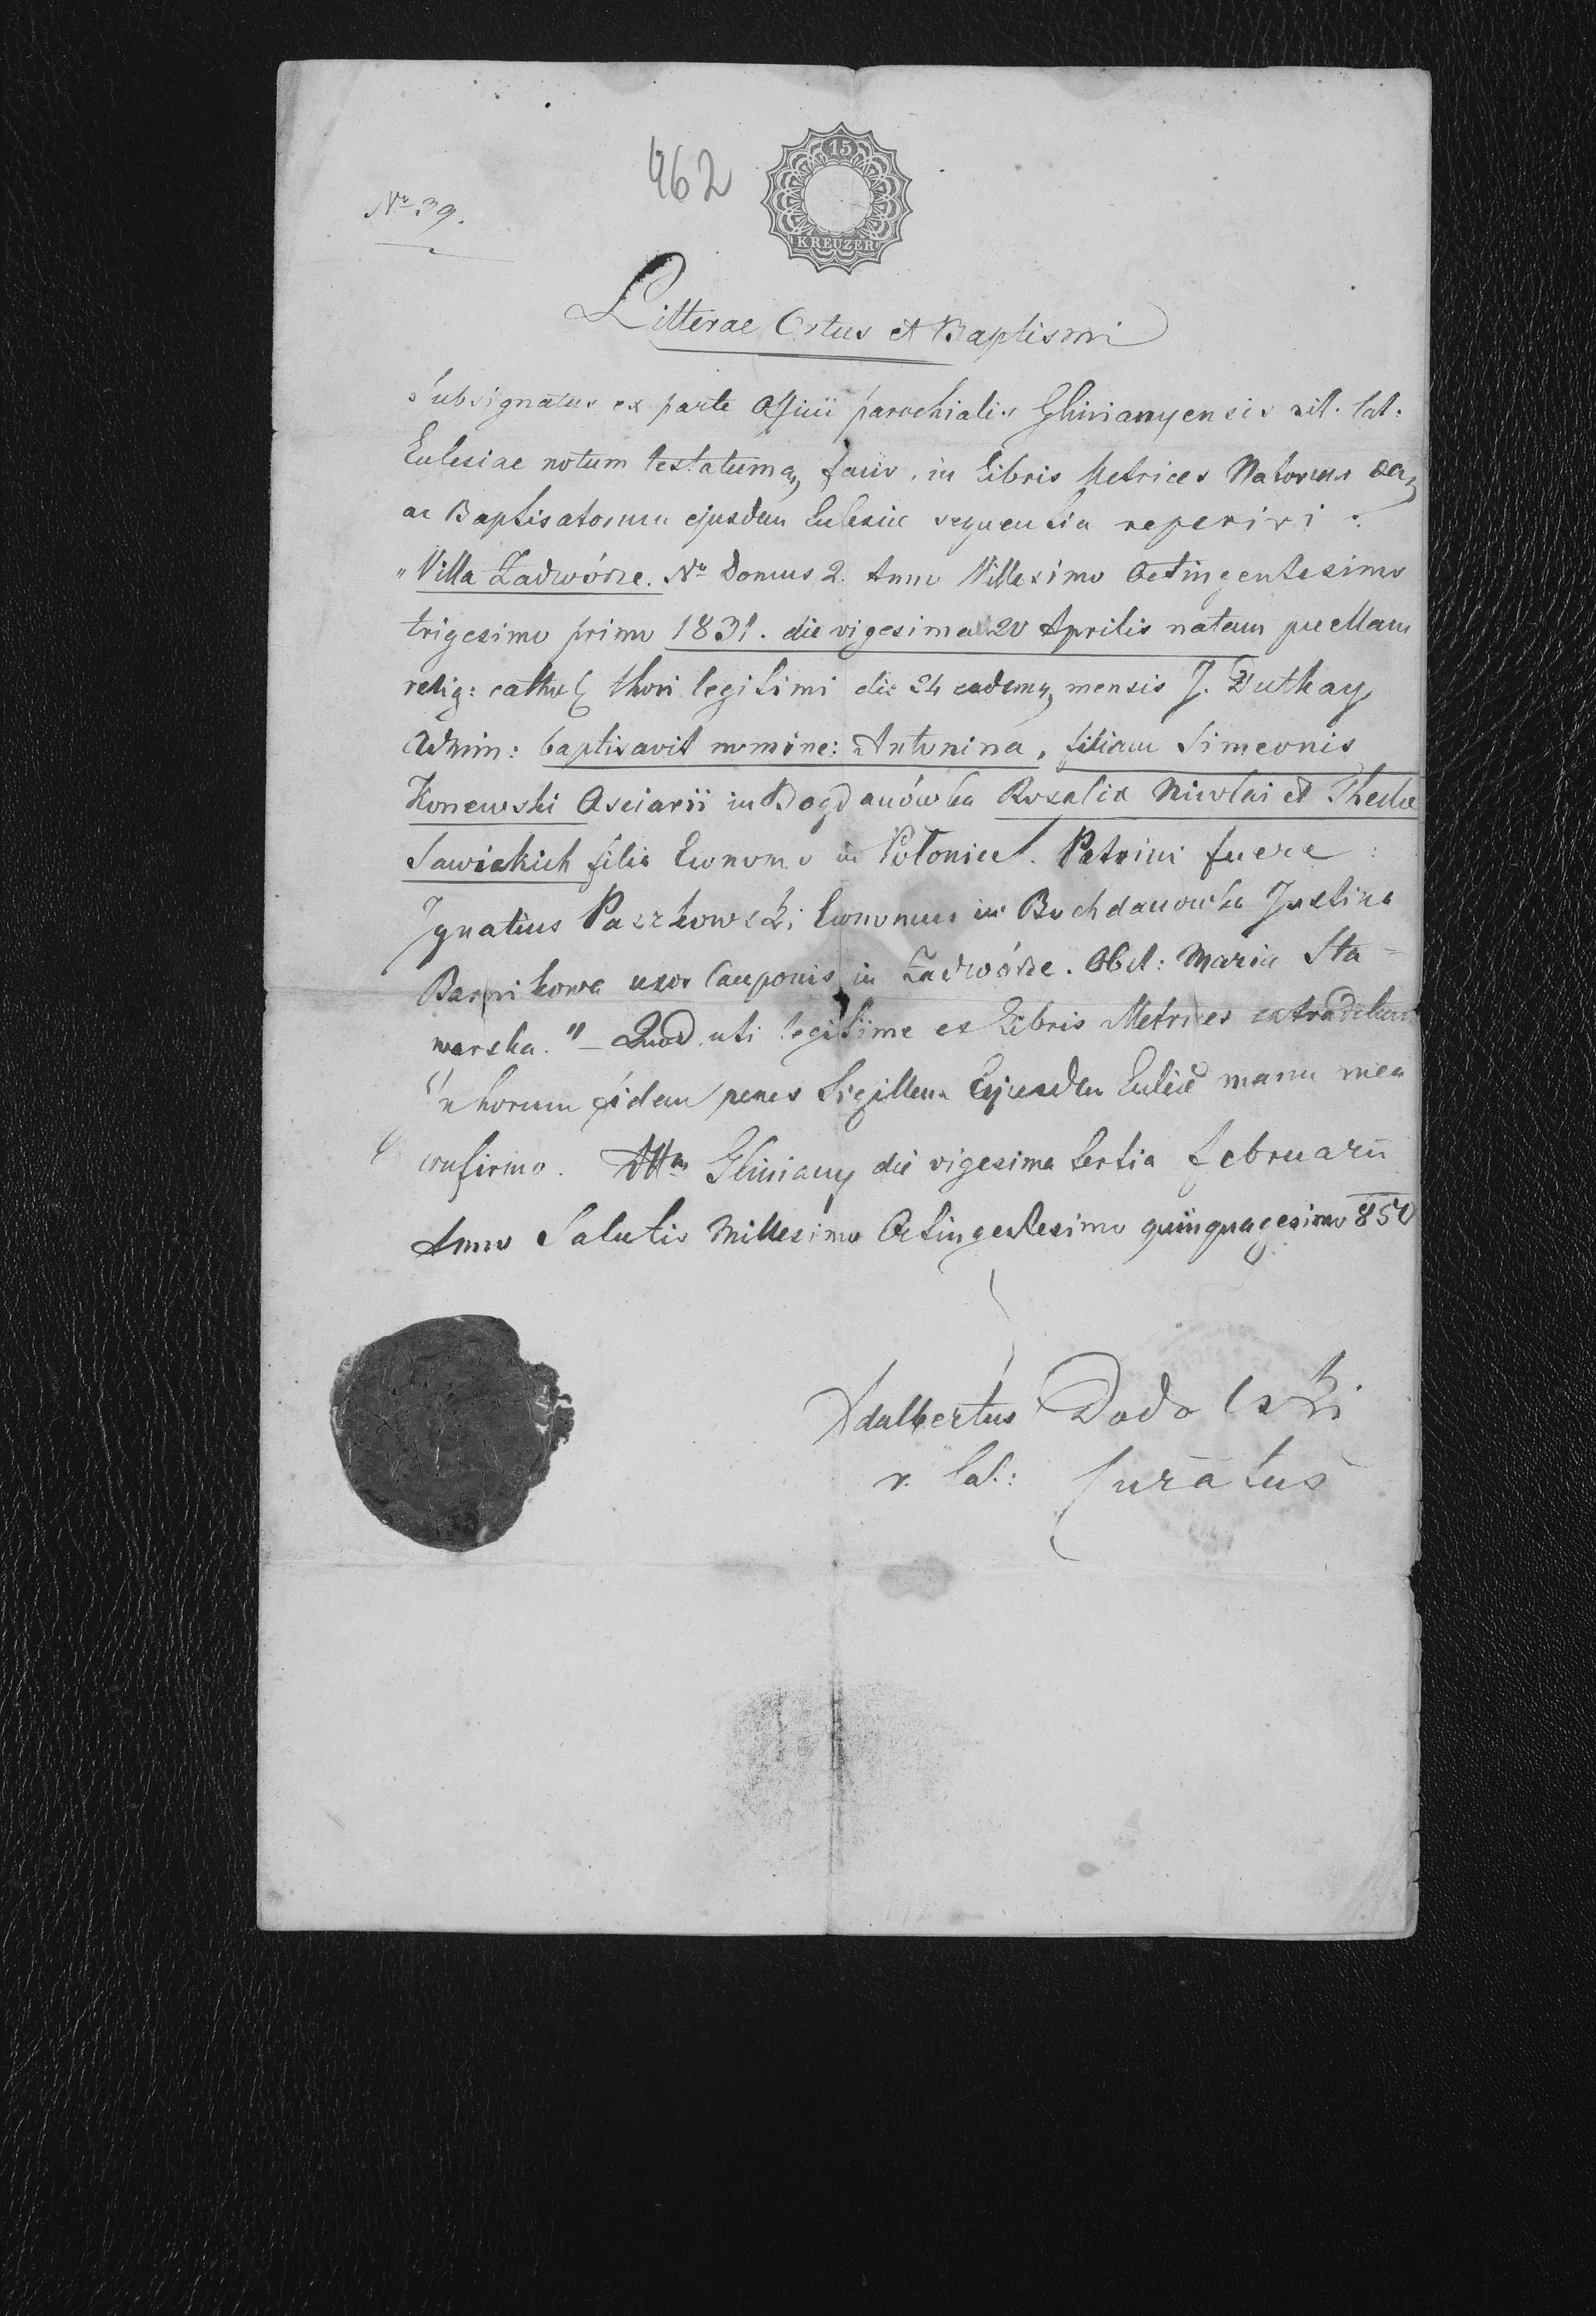 962
15
KREUZER
Nro 39.
Litterae Ortus et Baptismi
Subsignatus ex parte Officii parochialis Glinianyensis rit. lat.
Eclesiae notum testatumq, facio, in Libris Metrices Natorum
ac Baptisatorum ejusdem Eclesiae sequentia reperiri:
"Villa Zadwórze. Nro Domus 2. Anno Millesimo Octingentesimo
trigesimo primo 1831. die vigesima 20 Aprilis natam puellam
relig: cathol thori legitimi die 24 eadem mensis J. Duthay
Admin: baptisavit nomine: Antonina, filiam Simeonis
Konewski Asciarii in Bogdanówka Rosalia Nicolai et Theclae
Sawickich filia Economo in Potonice. Patrini fuere:
Ignatius Paszkowski Economus in Bochdanowka Justina
Barnikowa uxor Cauponis in Zadwórze. Obst: Maria Sta=
warska." – Quod uti legitime ex Libris Metrices extraditum
in horum fidem penes Sigillum Ejusdem Eclesiae manu mea
confirmo. Gliniany die vigesima tertia Februarii
Anno Salutis Millesimo Octingentesimo quinquagesimo 850
Adalbertus Dodolski
r. lat.: Curatus